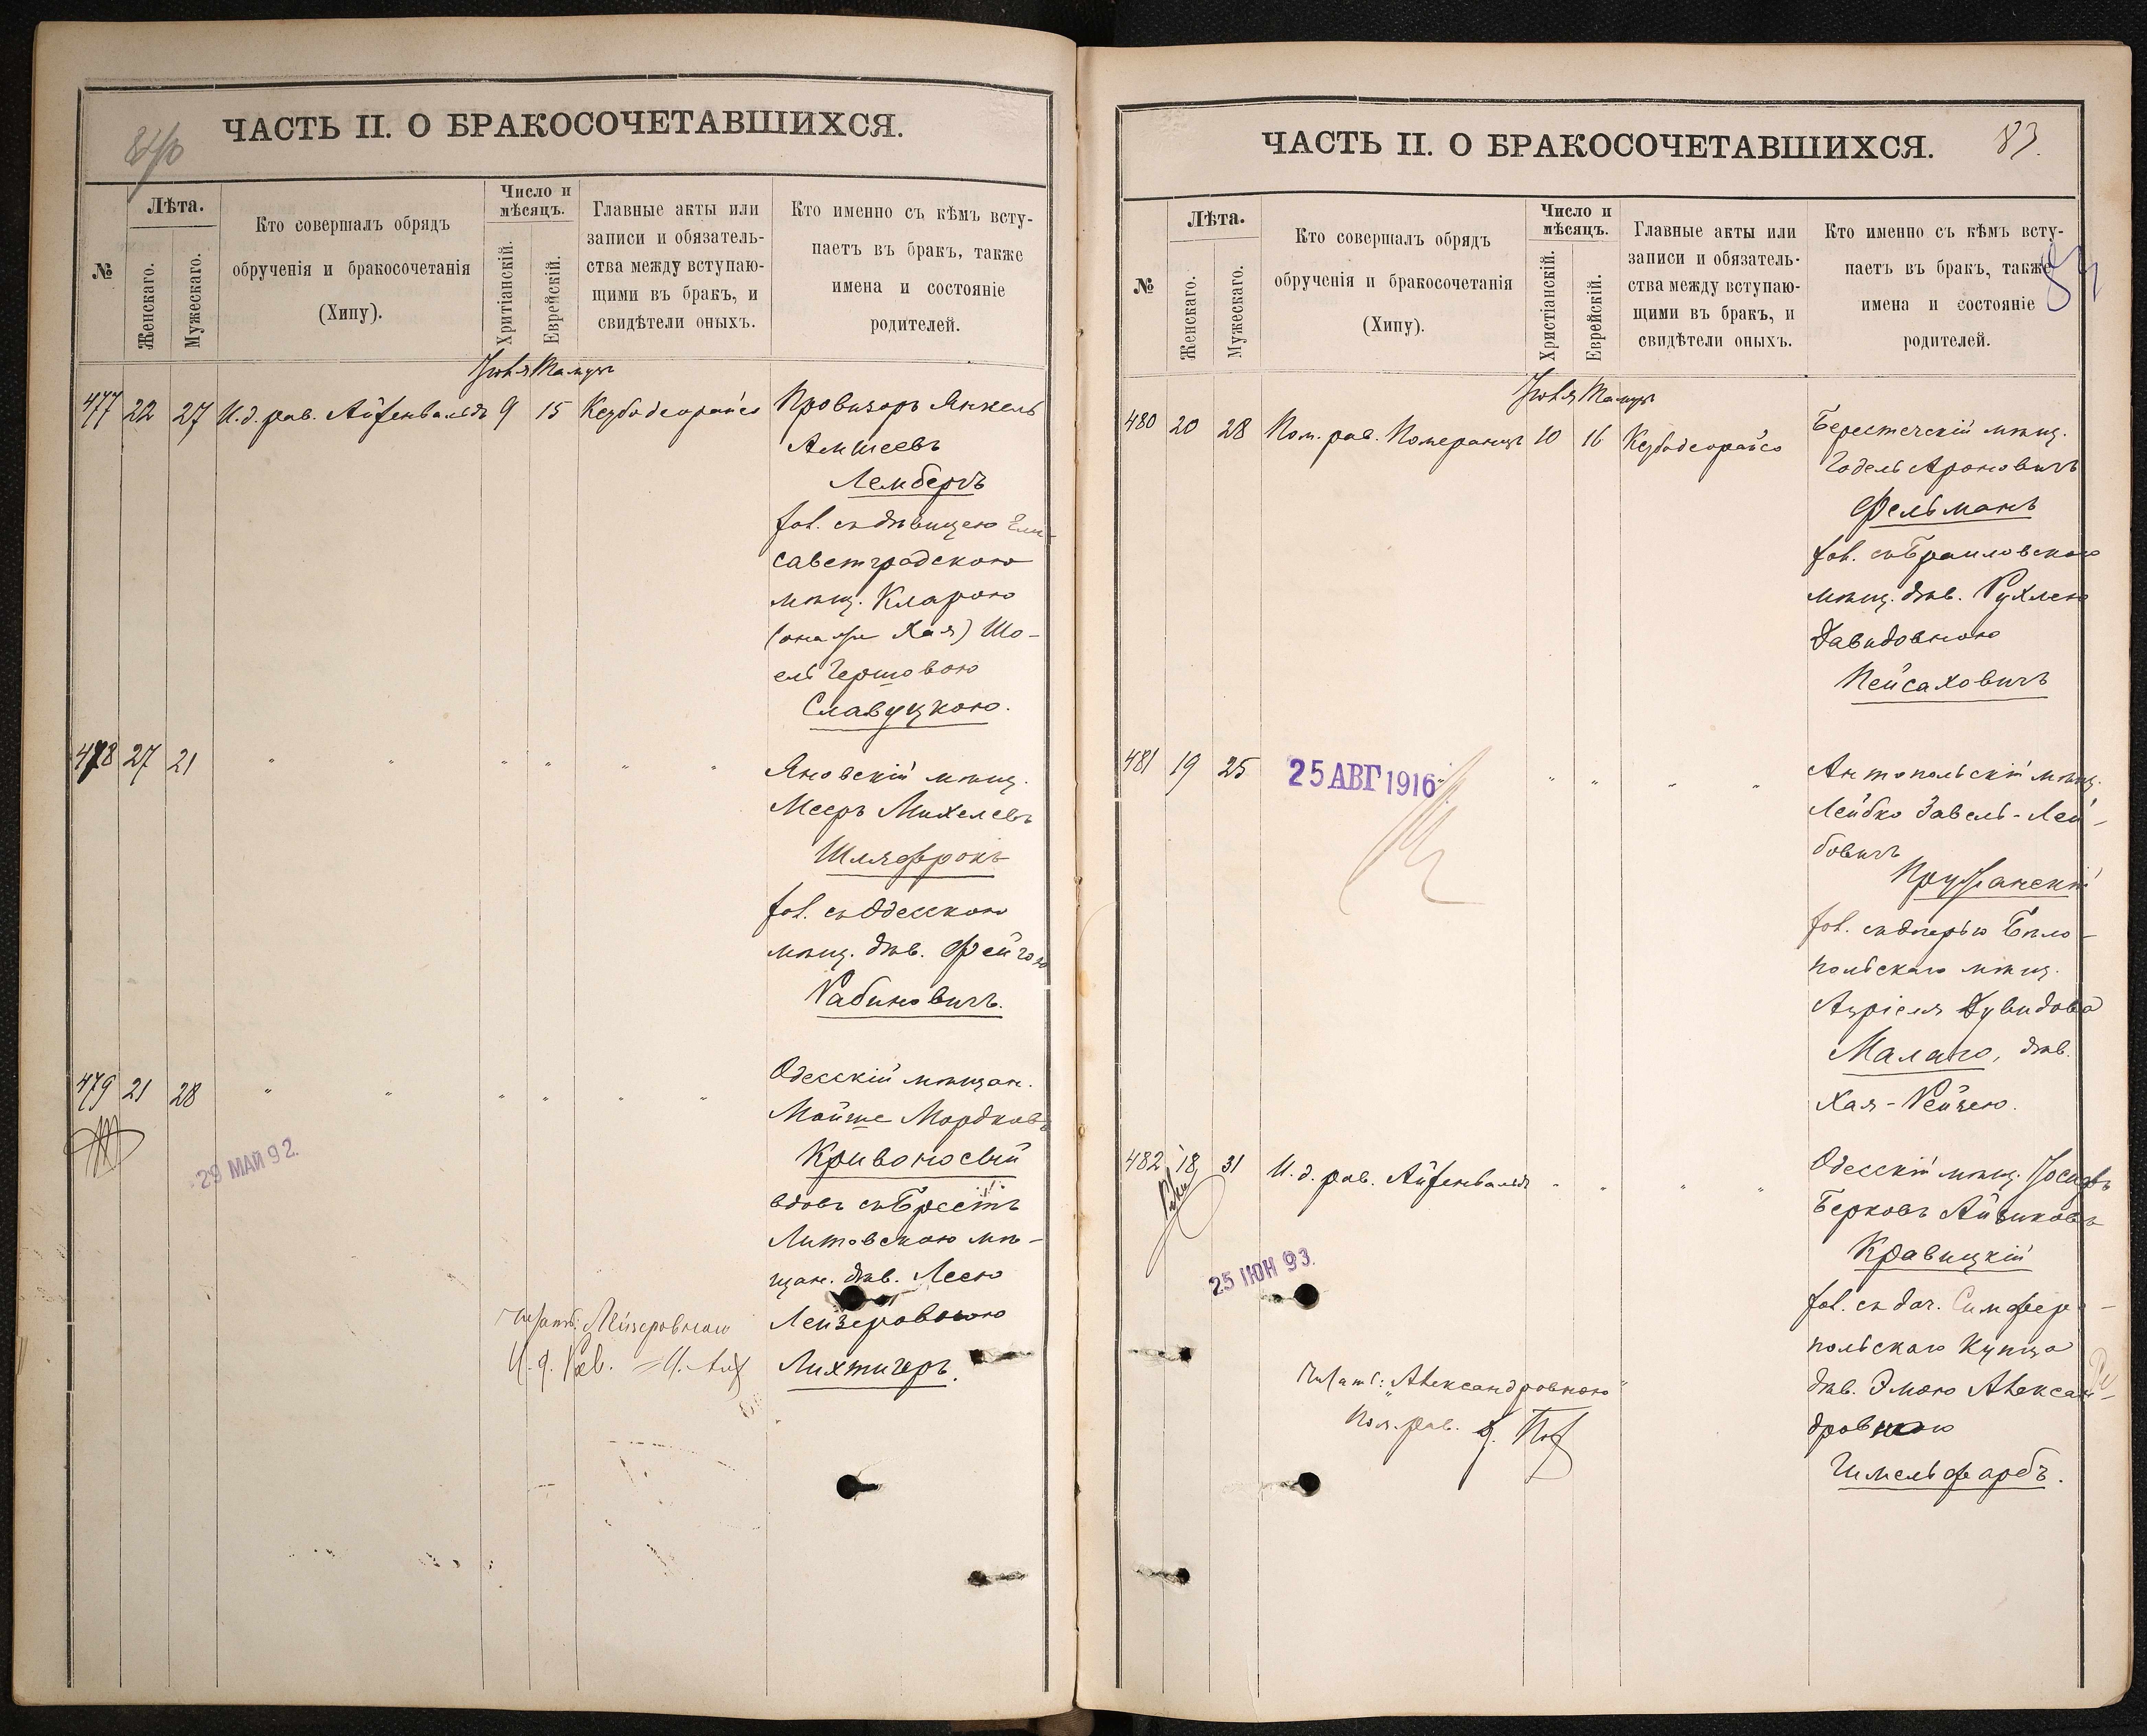 ЧАСТЬ II. О БРАКОСОЧЕТАВШИХСЯ.
№
Лѣта.
Женскаго.
Мужескаго.
Кто совершалъ обрядъ
обрученія и бракосочетанія
(Хипу).
Число и
мѣсяцъ.
Хритіанскій.
Еврейскій.
Главные акты или
записи и обязатель-
ства между вступаю-
щими въ бракъ, и
свидѣтели оныхъ.
Кто именно съ кѣмъ всту-
паетъ въ бракъ, также
имена и состояніе
родителей.
Іюня Тамузъ
477 22 27 И.д. рав. Айзенвальдъ 9 15 Кезубодеорайсо
Провизоръ Янкель
Амшеевъ
Лембергъ
хол. съ дѣвицею Ели-
саветградскою
мѣщ. Кларою
(она же Хая) Шо-
ель Гершовою
Славуцкою.
478 27 21 " " " " " "
Яновскій мѣщ.
Мееръ Михелевъ
Шляфрокъ
хол. съ Одесскою
мѣщ. дѣв. Фейгою
Рабиновичъ.
479 21 28 " " " " " "
Одесскій мѣщан.
Мойше Мордковъ
Кривоносый
вдовъ съ Брестъ
Литовскою мѣ-
щан. дѣв. Леею
Лейзеровною
Лихтигеръ.
29 МАЙ 92.
Читать: Лейзеровною
И. д. Рав.
ЧАСТЬ II. О БРАКОСОЧЕТАВШИХСЯ.
83.
№
Лѣта.
Женскаго.
Мужескаго.
Кто совершалъ обрядъ
обрученія и бракосочетанія
(Хипу).
Число и
мѣсяцъ.
Христіанскій.
Еврейскій.
Главные акты или
записи и обязатель-
ства между вступаю-
щими въ бракъ, и
свидѣтели оныхъ.
Кто именно съ кѣмъ всту-
паетъ въ бракъ, также
имена и состояніе
родителей.
Іюня Тамузъ
480 20 28 Пом. рав. Померанцъ 10 16 Кезубодеорайсо
Берестечскій мѣщ.
Годель Ароновичъ
Фельманъ
хол. съ Браиловскою
мѣщ. дѣв. Рухлею
Давидовною
Пейсаховичъ
481 19 25 " " " " "
25 АВГ 1916
Антопольскій мѣщ.
Лейбко Завель-Лей-
бовичъ
Пружанскій
хол. съ дочерью Бѣло-
польскаго мѣщ.
Азріеля Дувидова
Малаго, дѣв.
Хая-Рейзею.
482 18 31 И.д. рав. Айзенвальдъ " " " "
Одесскій мѣщ. Іосифъ
Берковъ Айзиковъ
Кравицкій
хол. съ доч. Симферо-
польскаго Купца
дѣв. Эмою Алексан-
дровною
Гимельфарбъ.
25 ІЮН 93.
Читать: "Александровною"
Пом. рав.